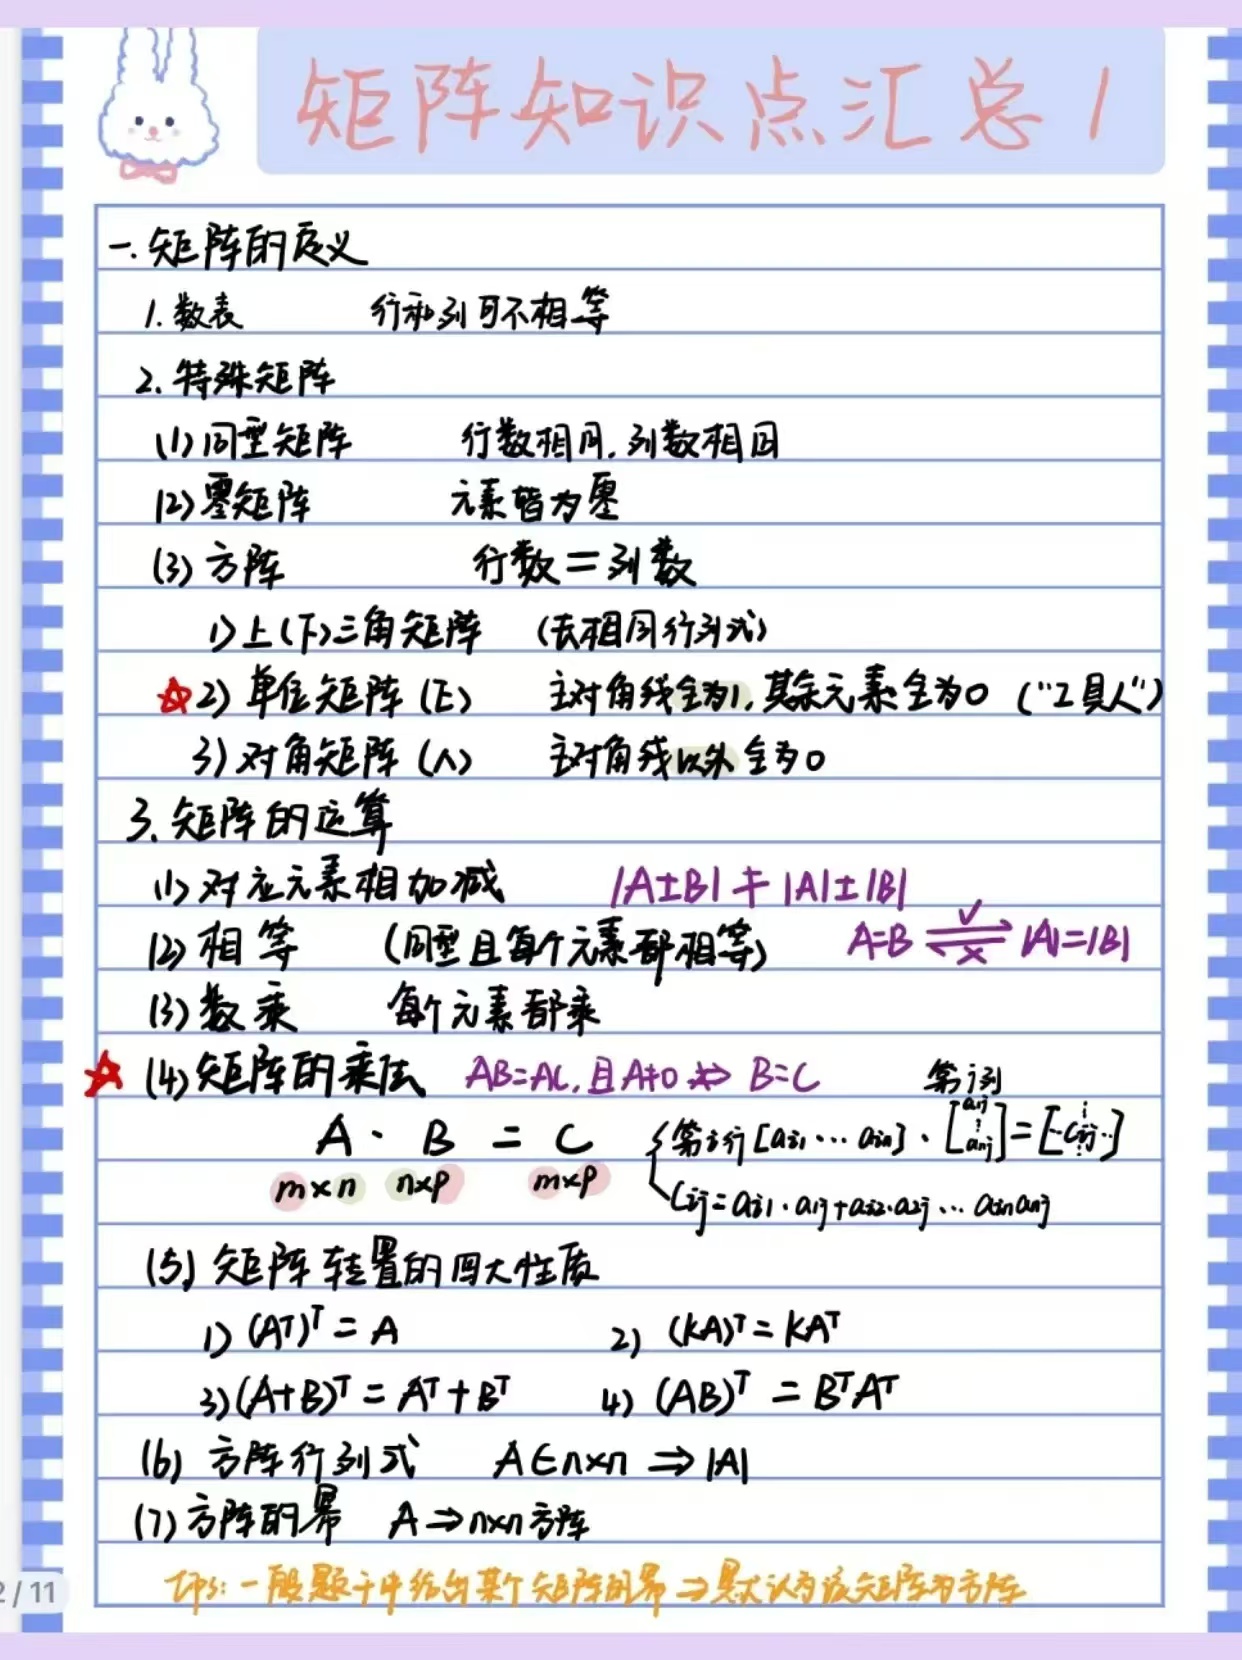 矩阵知识点汇总1
一. 矩阵的定义
1. 数表 行和列可不相等
2. 特殊矩阵
(1) 同型矩阵 行数相同, 列数相同
(2) 零矩阵 元素皆为零
(3) 方阵 行数=列数
1) 上(下)三角矩阵 (去相同行列式)
☆2) 单位矩阵 (E) 主对角线全为1, 其余元素全为0 ("工具人")
3) 对角矩阵 (Λ) 主对角线以外全为0
3. 矩阵的运算
(1) 对应元素相加减 |A±B| ≠ |A|±|B|
(2) 相等 (同型且每个元素都相等) A=B ⇌ |A|=|B| √ ×
(3) 数乘 每个元素都乘
☆ (4) 矩阵的乘法 AB=AC, 且A≠0 ⇏ B=C 第j列
A · B = C 第i行 [ai1 ··· ain] · [a1j ⋮ anj] = [··Cij··]
m×n n×p m×p Cij = ai1·a1j+ai2·a2j ··· ain anj
(5) 矩阵转置的四大性质
1) (Aᵀ)ᵀ = A 2) (kA)ᵀ = kAᵀ
3) (A+B)ᵀ = Aᵀ+Bᵀ 4) (AB)ᵀ = BᵀAᵀ
(6) 方阵行列式 A∈n×n ⇒ |A|
(7) 方阵的幂 A⇒n×n方阵
Tips: 一般题干中给出某个矩阵的幂 ⇒ 默认为该矩阵为方阵
2/11